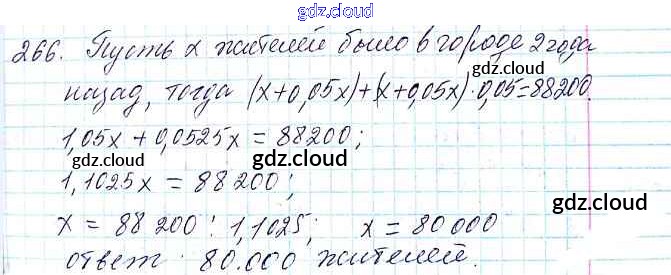 gdz.cloud
266. Пусть x жителей было в городе 2 года
gdz.cloud
назад, тогда (x+0,05x)+(x+0,05x)·0,05=88200.
1,05x + 0,0525x = 88200;
gdz.cloud gdz.cloud
1,1025x = 88200;
x = 88 200 : 1,1025; x = 80 000
gdz.cloud gdz.cloud
ответ : 80.000 жителей.